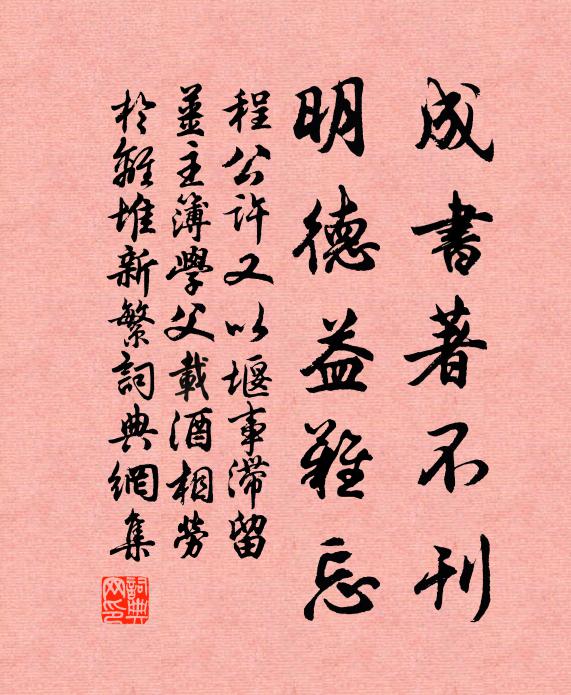 成書著不刊
明德益難忘
程公許又以堰事滯留
姜主簿學父載酒相勞
於離堆新繁詞典網集
詞典网印